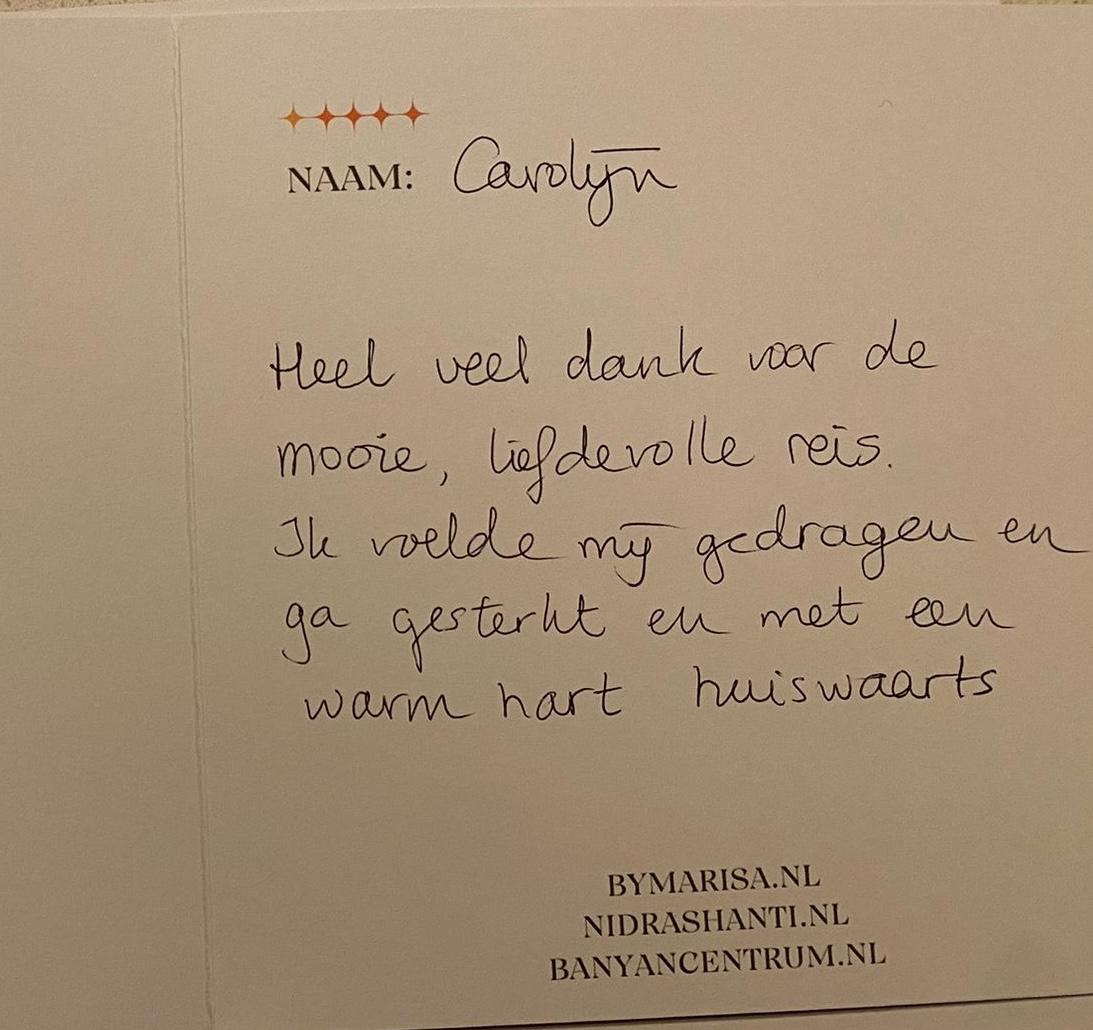 NAAM: Carolijn
Heel veel dank voor de
mooie, liefdevolle reis.
Ik voelde mij gedragen en
ga gesterkt en met een
warm hart huiswaarts
BYMARISA.NL
NIDRASHANTI.NL
BANYANCENTRUM.NL